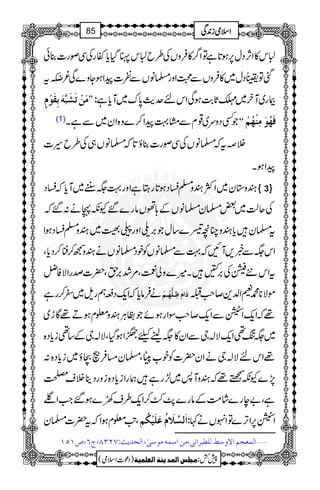 اسلامی زندگی 85
لباس کا اثر دل پر ہوتا ہے تو اگر کافروں کی طرح لباس پہنا گیا یا کفار کی سی صورت بنائی
گئی تو یقیناً دل میں کافروں سے محبت اور مسلمانوں سے نفرت پیدا ہو جاوے گی غرضکہ یہ
بیماری آخر میں مہلک ثابت ہوگی اس لئے حدیث پاک میں آیا ہے: ”مَنْ تَشَبَّهَ بِقَوْمٍ
فَهُوَ مِنْهُمْ“ جو کسی دوسری قوم سے مشابہت پیدا کرے وہ ان میں سے ہے۔ (1)
خلاصہ یہ کہ مسلمانوں کی سی صورت بناؤ تاکہ مسلمانوں ہی کی طرح سیرت
پیدا ہو۔
{3} ہندوستان میں اکثر ہندو مسلم فساد ہوتا رہتا ہے اور بہت جگہ سننے میں آیا کہ فساد
کی حالت میں بعض مسلمان مسلمانوں کے ہاتھوں مارے گئے کیونکہ پہچانے نہ گئے کہ
یہ مسلمان ہیں یا ہندو چنانچہ تیسرے سال جو بریلی اور پیلی بھیت میں ہندو مسلم فساد ہوا
اس جگہ سے خبریں آئیں کہ بہت سے مسلمانوں کو خود مسلمانوں نے ہندو سمجھ کر فنا کر دیا،
یہ اس نئے فیشن کی برکتیں ہیں۔ میرے ولی نعمت مرشد برحق، حضرت صدرالافاضل
مولانا محمد نعیم الدین صاحب قبلہ دَامَ ظِلُّهُمْ نے فرمایا کہ ایک دفعہ ہم ریل میں سفر کر رہے
تھے کہ ایک اسٹیشن سے ایک صاحب سوار ہوئے جو بظاہر ہندو معلوم ہوتے تھے گاڑی
میں جگہ تنگ تھی ایک لالہ جی سے ان کا جگہ لینے کیلئے جھگڑا ہو گیا، لالہ جی کے ساتھی زیادہ
تھے اس لئے لالہ جی نے ان حضرت کو خوب پیٹا، مسلمان مسافر بیچ بچاؤ میں زیادہ نہ
پڑے کیونکہ سمجھے تھے کہ ہندو آپس میں لڑ رہے ہیں ہمارا زیادہ زور دینا خلافِ مصلحت
ہے، بے چارے شامت کے مارے پٹ کٹ کر ایک طرف کھڑے ہو گئے جب اگلے
اسٹیشن پر اترے تو انہوں نے کہا: اَلسَّلَامُ عَلَیْکُم، تب معلوم ہوا کہ یہ حضرت مسلمان
1 ......المعجم الاوسط للطبرانی، من اسمه موسیٰ، الحدیث: ٨٣٢٧، ج٦، ص ١٥١
پیش کش: مجلس المدینة العلمیة (دعوت اسلامی)